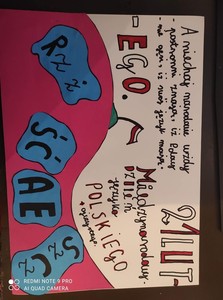 A niechaj narodowie wżdy
- postronni znają, iż Polacy
- nie gęsi, iż swój język mają.
21 LUT-
-EGO.
Międzynarodowy
Dzień
języka
POLSKIEGO
Rz ż
ŚĆ
ĄĘ
Sz
Cz
REDMI NOTE 9 PRO
AI QUAD CAMERA